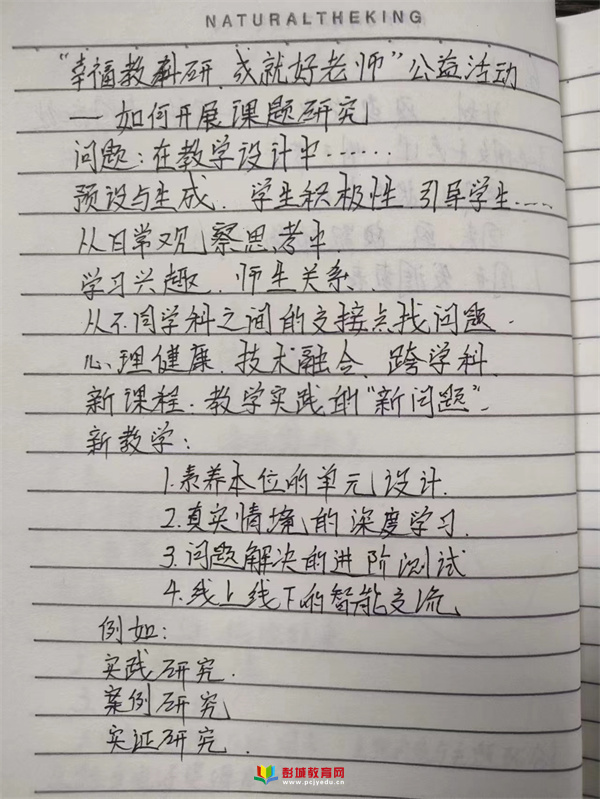 NATURALTHEKING
“幸福教科研,成就好老师”公益活动
— 如何开展课题研究
问题:在教学设计中······
预设与生成. 学生积极性 引导学生……
从日常观察思考中
学习兴趣. 师生关系.
从不同学科之间的交接点找问题.
心理健康. 技术融合. 跨学科.
新课程:教学实践的“新问题”.
新教学:
1.素养本位的单元设计.
2.真实情境的深度学习.
3.问题解决的进阶测试
4.线上线下的智能交流
例如:
实践研究.
案例研究
实证研究.
彭城教育网
www.pcjyedu.cn